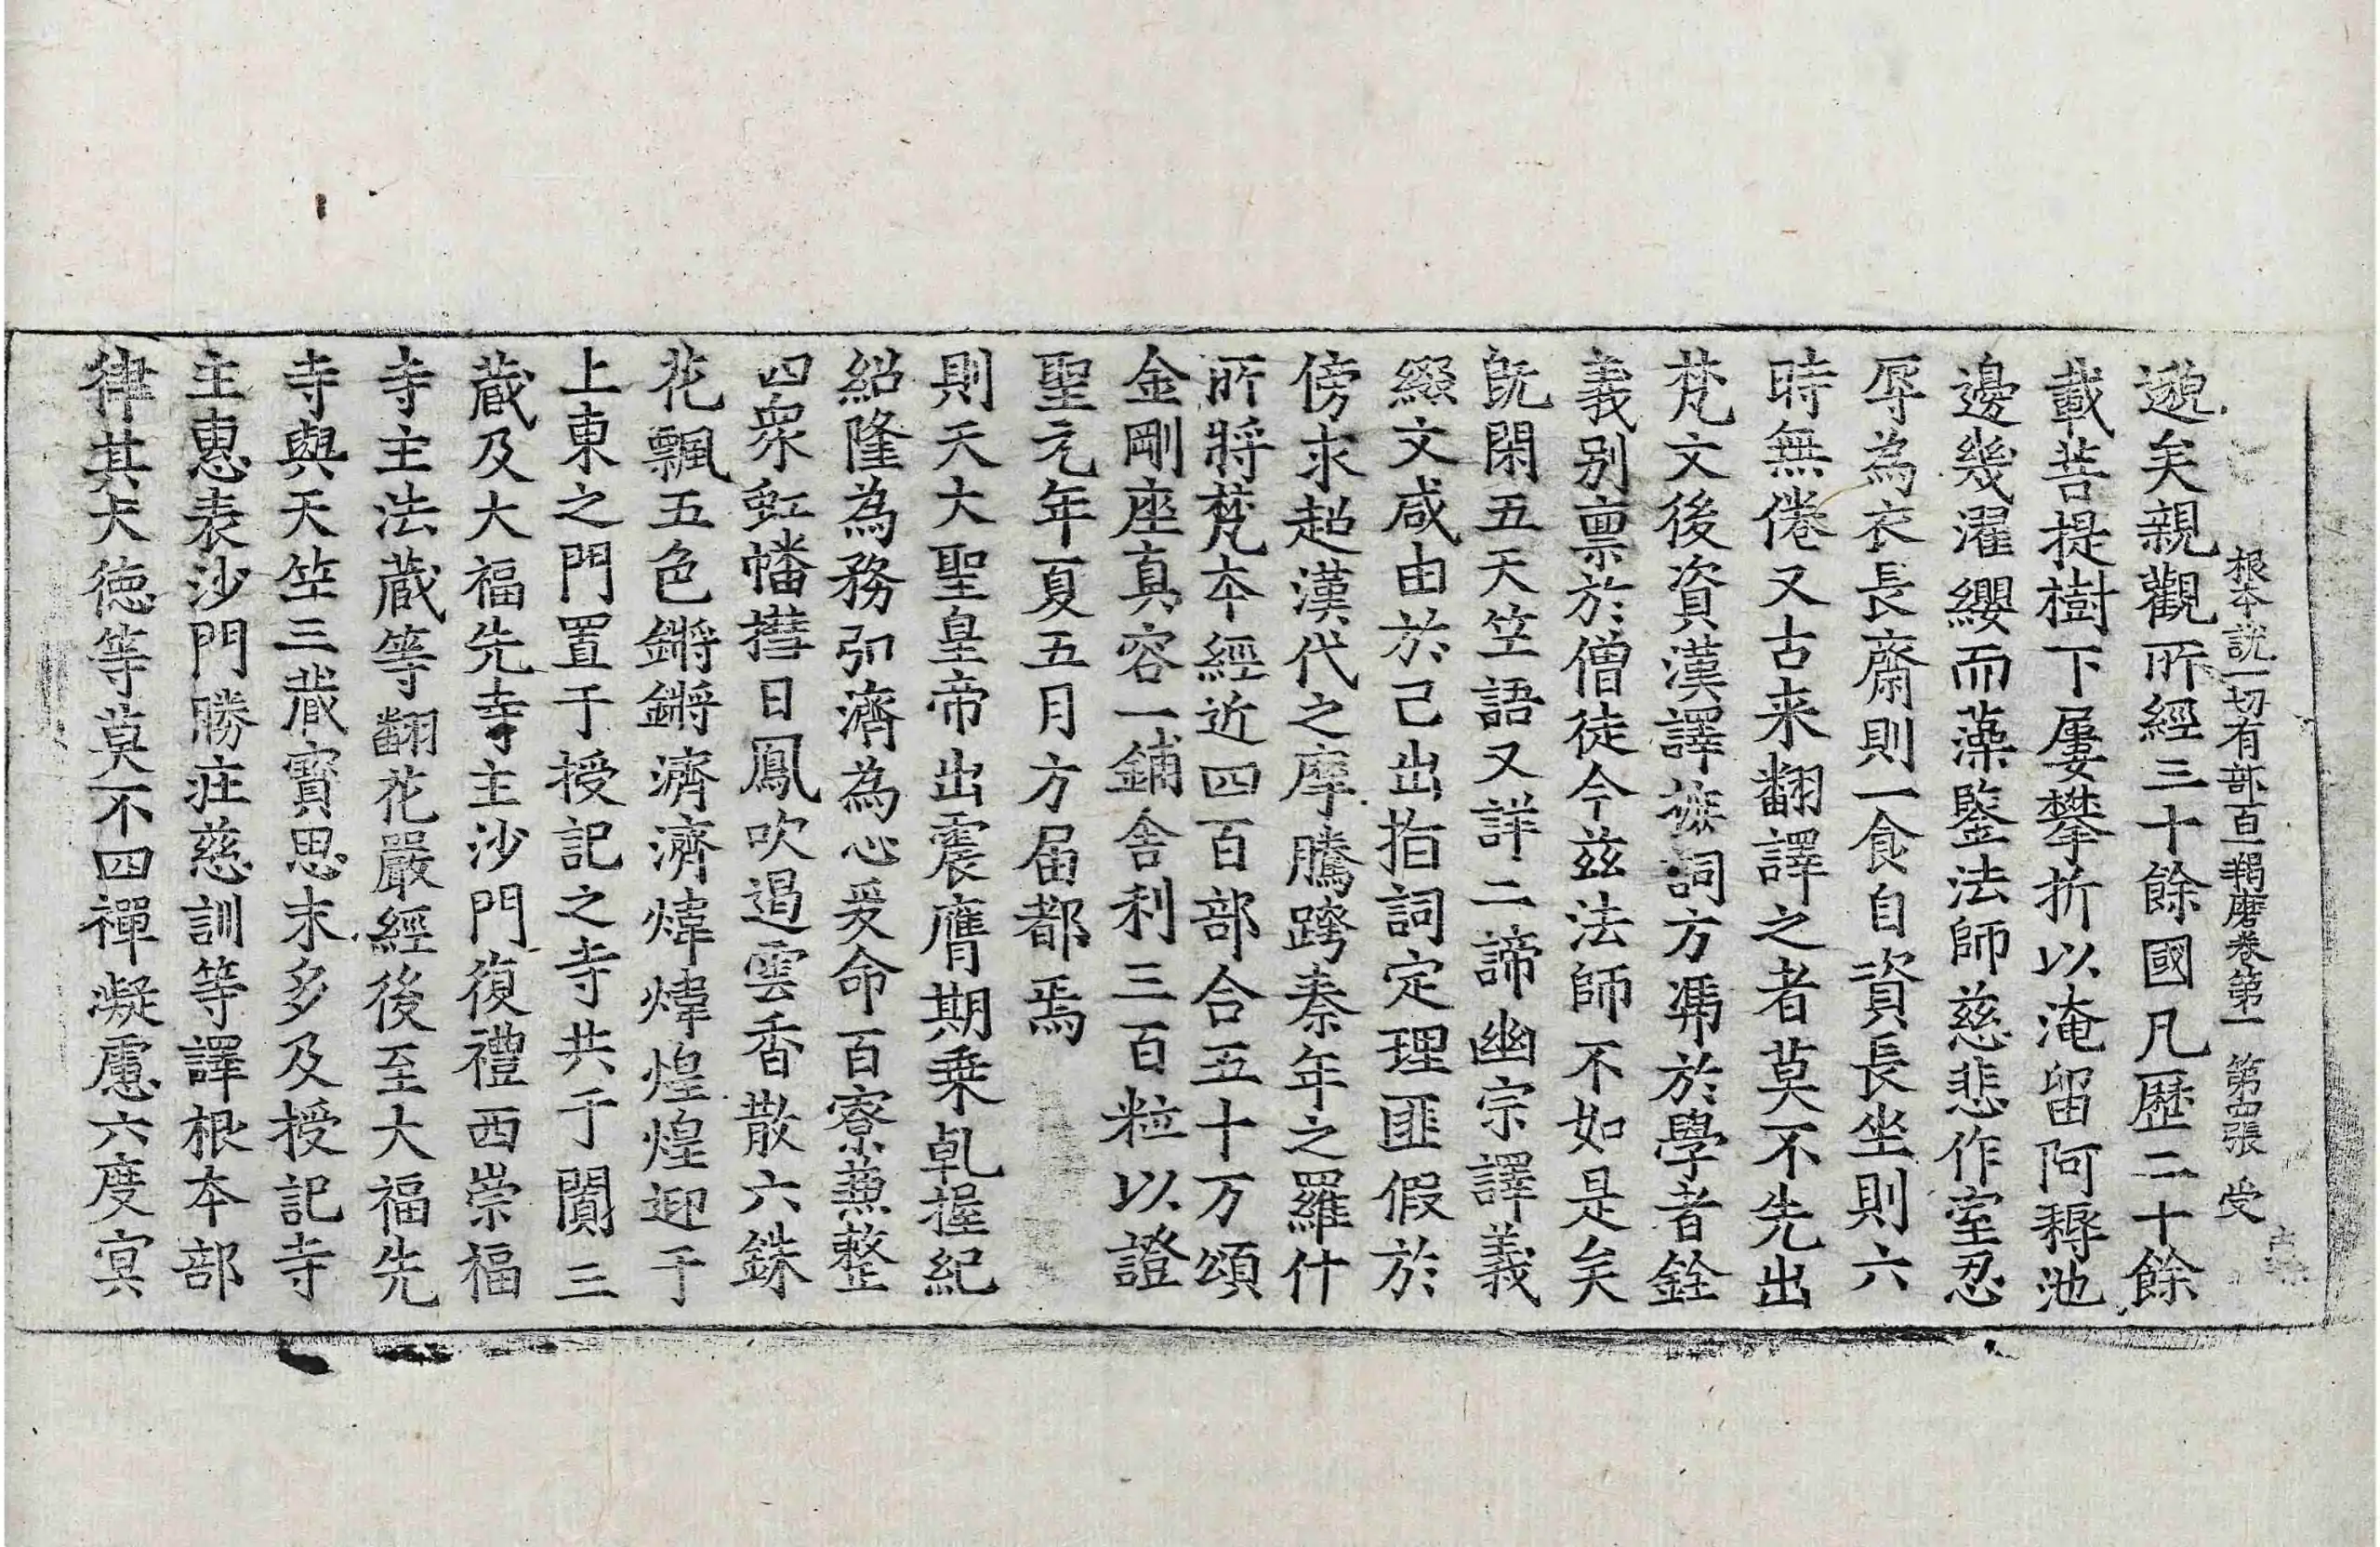 根本說一切有部百一羯磨卷第一 第四張 受
邈矣親觀所經三十餘國凡歷二十餘
載菩提樹下屢攀折以淹留阿耨池
邊幾濯纓而藻鑒法師慈悲作室忍
辱為衣長齋則一食自資長坐則六
時無倦又古来翻譯之者莫不先出
梵文後資漢譯摭詞方馮於學者銓
義别禀於僧徒今茲法師不如是矣
旣閑五天竺語又詳二諦幽宗譯義
綴文咸由於己出指詞定理匪假於
傍求超漢代之摩騰跨秦年之羅什
所將梵本經近四百部合五十万頌
金剛座真容一鋪舍利三百粒以證
聖元年夏五月方届都焉
則天大聖皇帝出震膺期乗乹握紀
紹隆為務弘濟為心爰命百寮兼整
四衆虹幡㬢日鳳吹遏雲香散六銖
花飄五色鏘鏘濟濟煒煒煌煌迎于
上東之門置于授記之寺共于闐三
蔵及大福先寺主沙門復禮西崇福
寺主法蔵等翻花嚴經後至大福先
寺與天竺三蔵寶思末多及授記寺
主惠表沙門勝莊慈訓等譯根本部
律其大德等莫不四禪凝慮六度冥